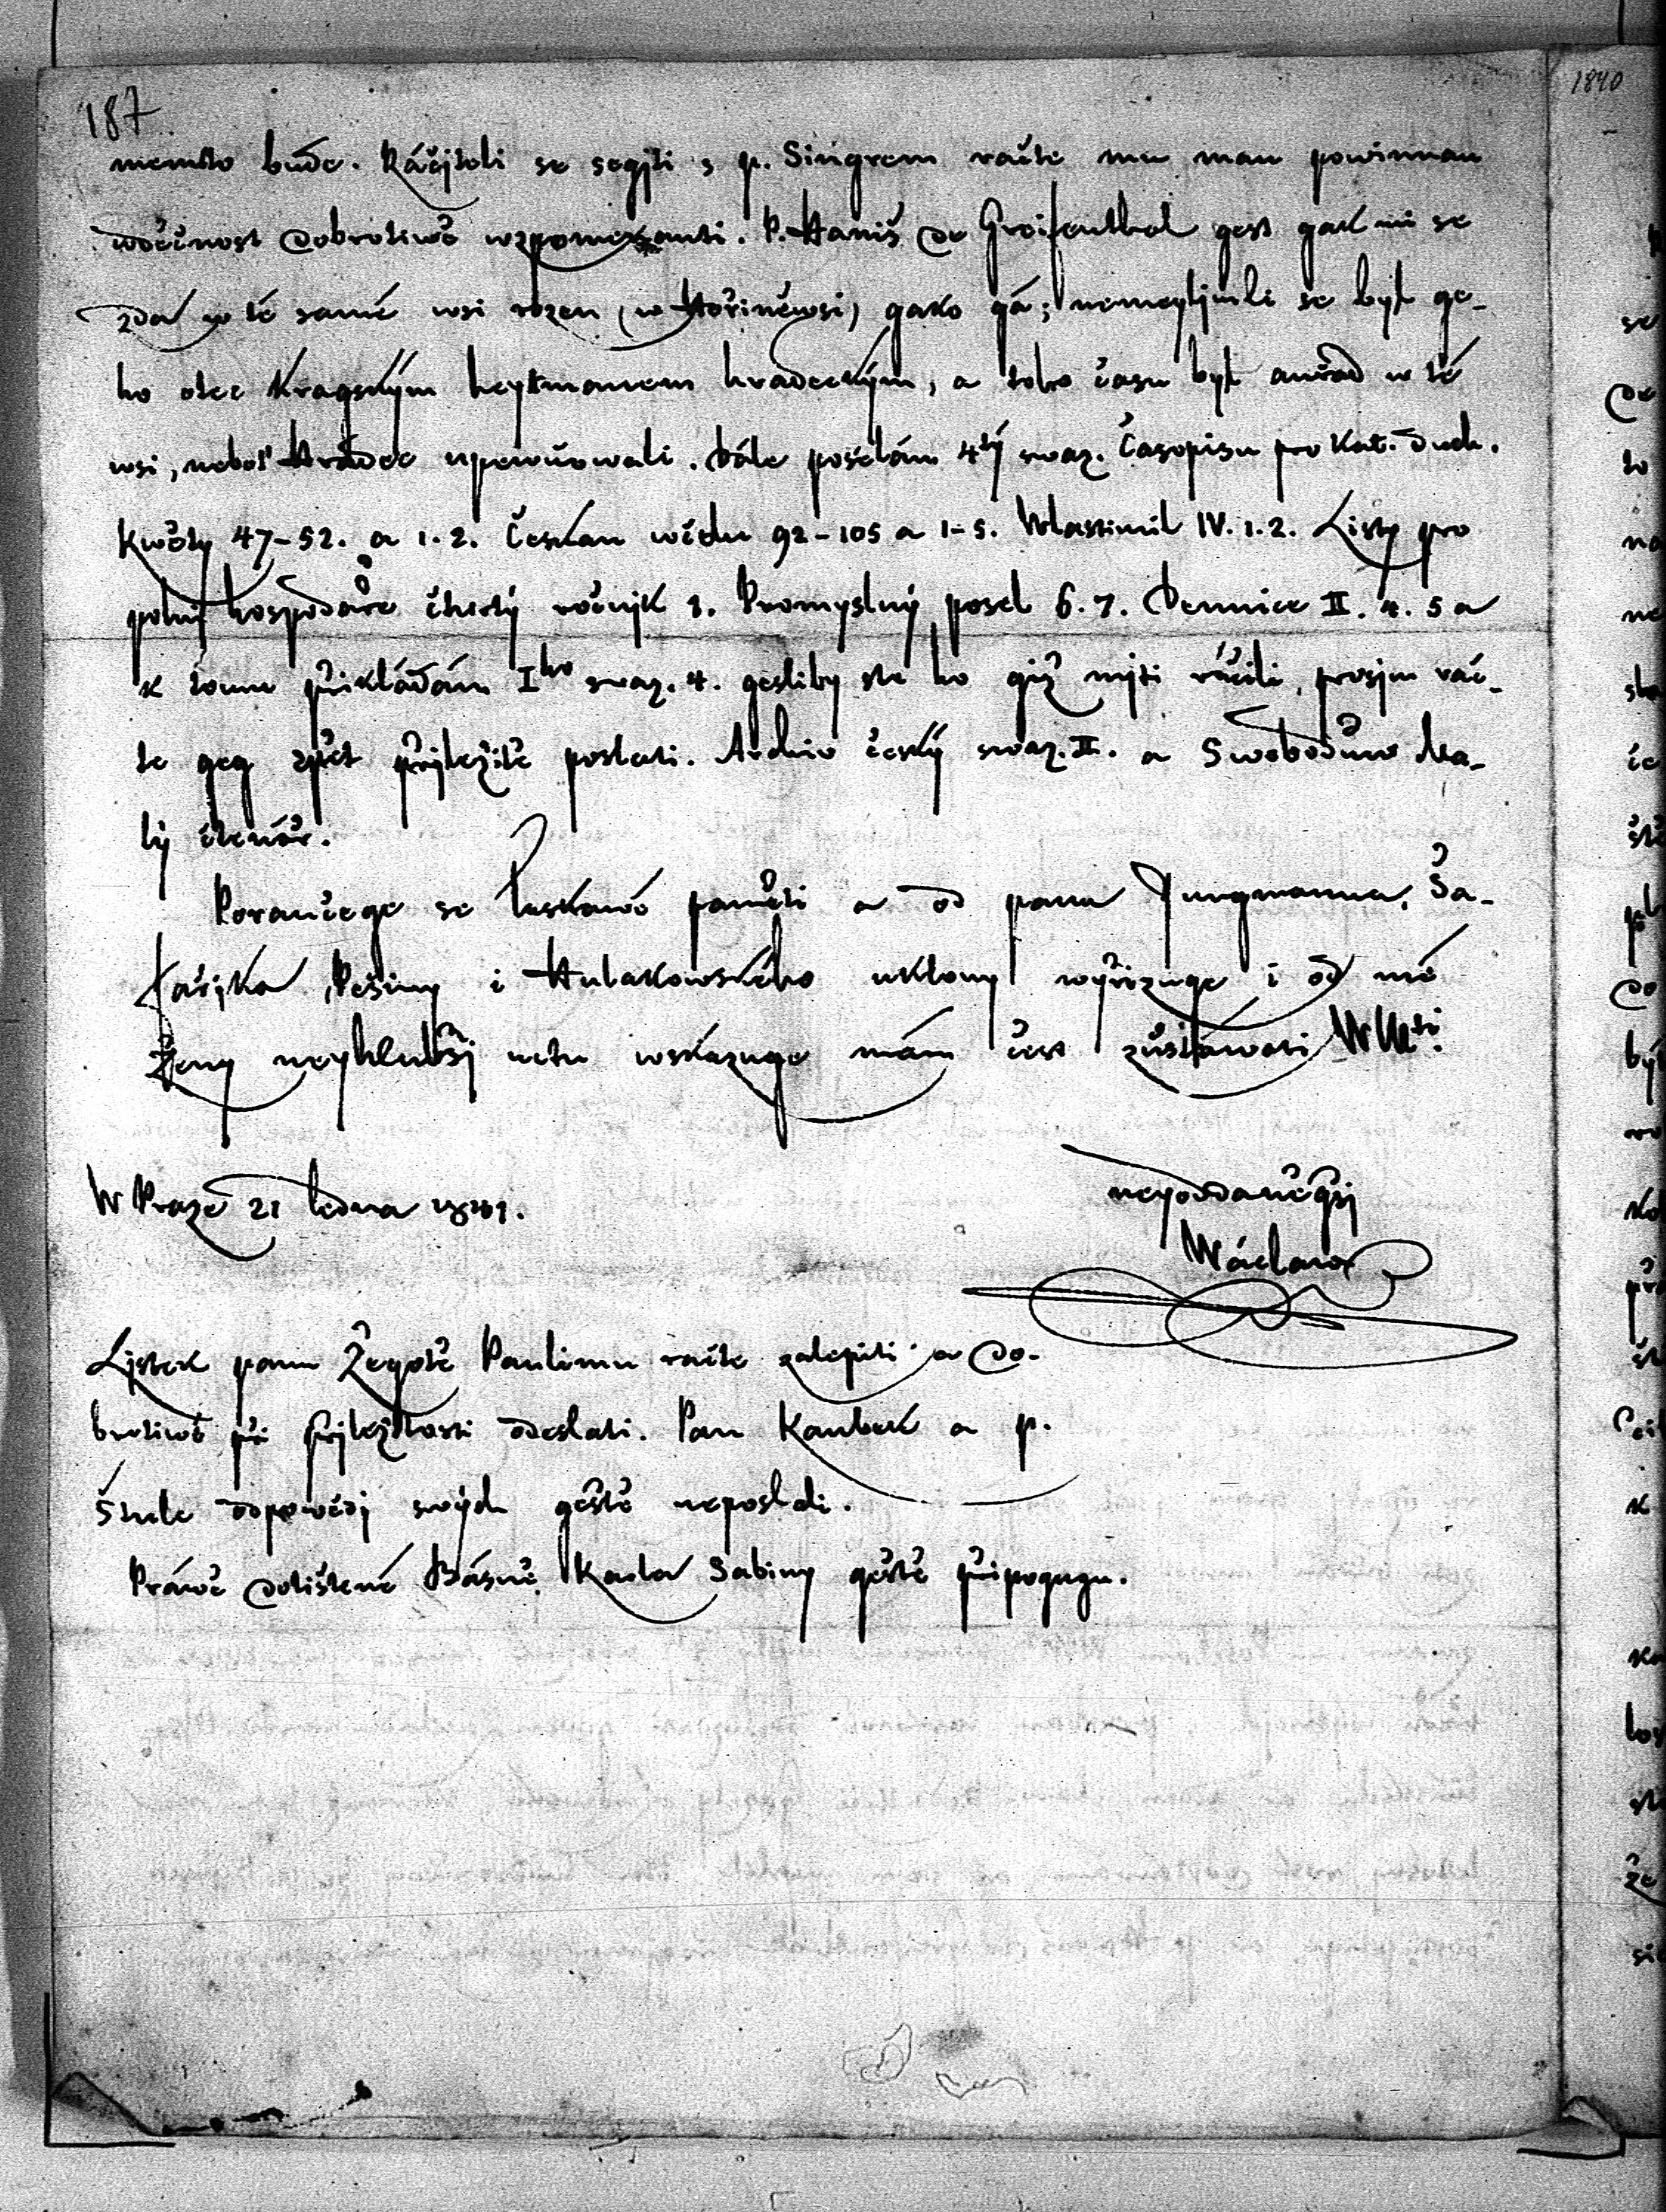 187
1840
nemilo bude. Ráčjteli se segjti s p. Singrem račte mu mau powinnau
wděčnost dobrotiwě wzpomenauti. P. Haniš de Greifenthal gest gak mi se
zdá w té samé wsi rozen (w Hořiněwsi) gako gá; nemeyljmli se byl ge-
ho otec kragským heytmanem hradeckým, a toho času byl auřad w té
wsi, neboť Hradec upewňowali. Dále posélám 4tý swaz. Časopisu pro kat. duch.
Květy 47-52. a 1. 2. Českau wčelu 92-105 a 1-5. Wlastimil IV. 1. 2. Listy pro
polnj hospodáře čtwrtý ročnjk 1. Promyslný posel 6. 7. Dennice II. 4. 5 a
k tomu přikládám Iho swaz. 4. gestliby ste ho giž mjti ráčili, prosjm rač-
te geg zpět přjležitě poslati. Archiv český swaz. II. a Swobodůw Ma-
lý čtenář.
Poraučege se laskawé paměti a od pana Jungmanna, Ša-
fařjka, Pešiny i Hulakowského uklony wyřizuge i od mé
ženy neyhlubšj uctu wskazuge mám čest zůstáwati WMti.
W Praze 21 ledna 1841.
neyoddaněgšj
Wáclaw
Ljstek panu Žegotě Paulimu račte zalepiti a do-
brotiwě při přjležitosti odeslati. Pan Kaubek a p.
Štulc odpowědj swých geště neposlali.
Práwě dotištěné Básně Karla Sabiny geště připogugu.